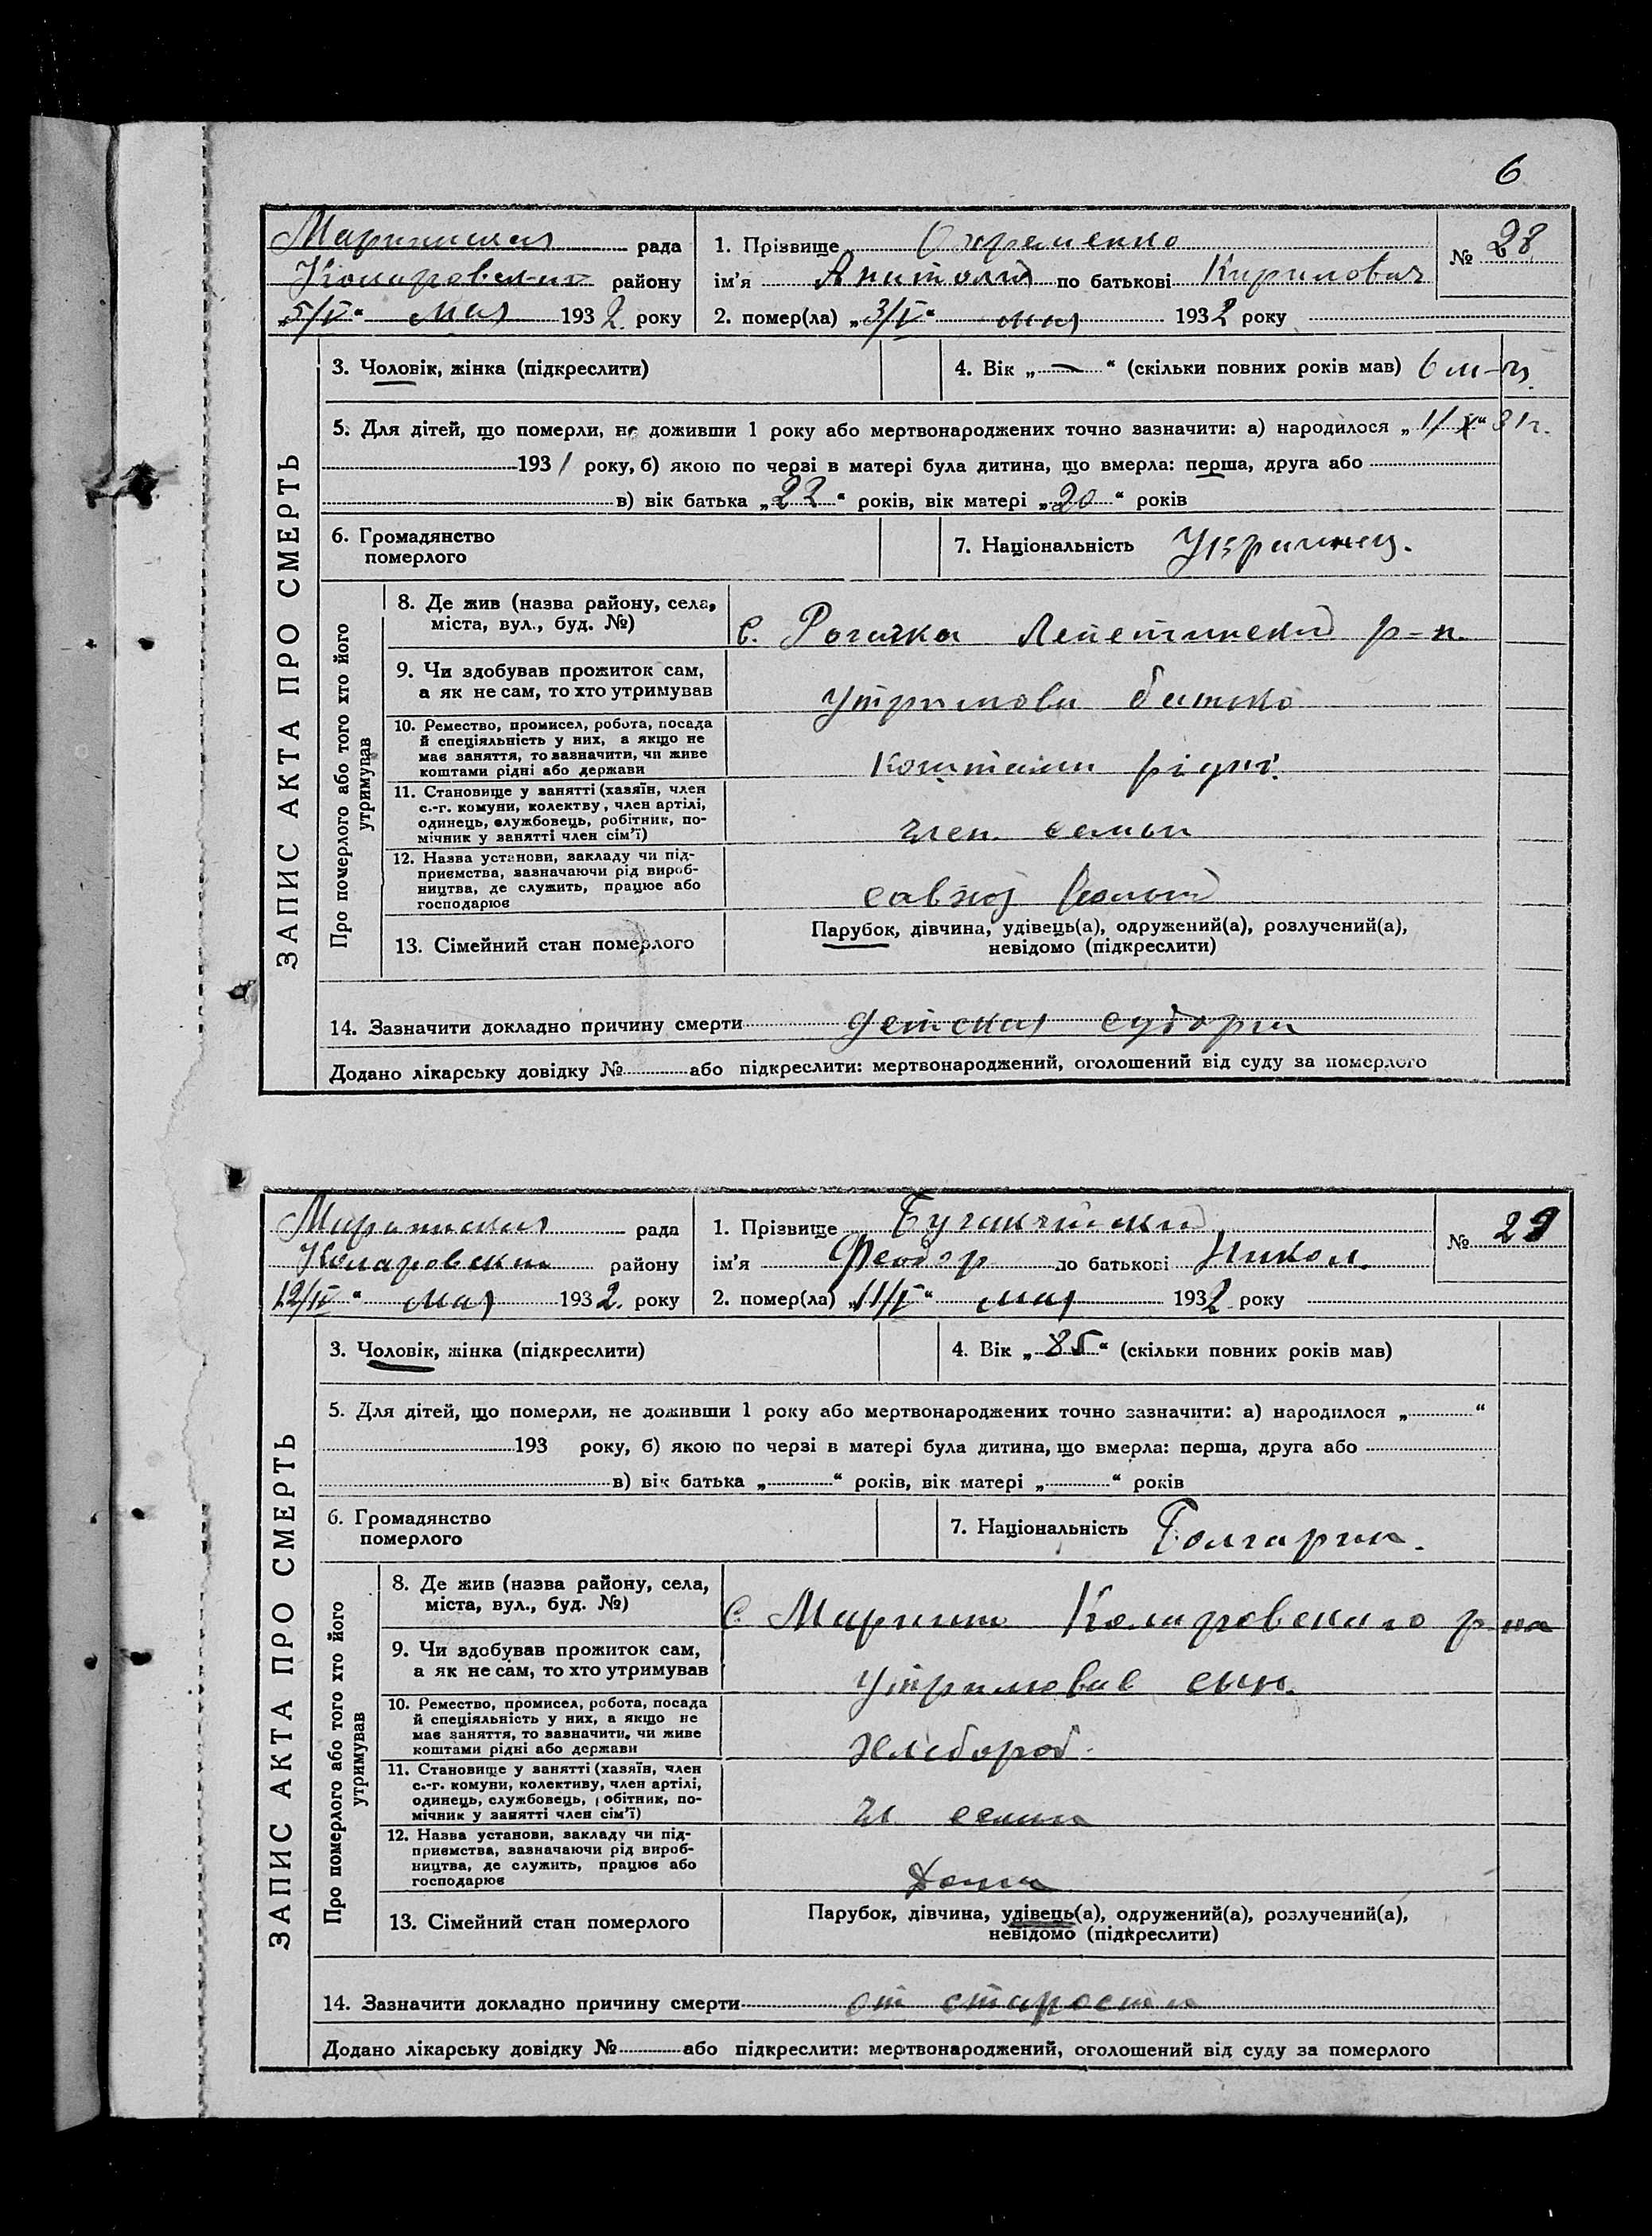 6
Мариинская рада
Коларовский району
„5/V“ мая 1932 року
1. Прізвище Охременко
ім'я Анатолий по батькові Кирилович
2. помер(ла) „3/V“ мая 1932 року
№ 28
ЗАПИС АКТА ПРО СМЕРТЬ
3. Чоловік, жінка (підкреслити)
4. Вік „—“ (скільки повних років мав) 6 м-ц.
5. Для дітей, що померли, не доживши 1 року або мертвонароджених точно зазначити: а) народилося „1/X“ 31 г.
1931 року, б) якою по черзі в матері була дитина, що вмерла: перша, друга або
в) вік батька „22“ років, вік матері „20“ років
6. Громадянство
померлого
7. Національність Украинец.
Про померлого або того хто його
утримував
8. Де жив (назва району, села,
міста, вул., буд. №)
С. Рогачка Лепетинский р-н.
9. Чи здобував прожиток сам,
а як не сам, то хто утримував
Утримова батько
10. Ремество, промисел, робота, посада
й спеціяльність у них, а якщо не
має заняття, то зазначити, чи живе
коштами рідні або держави
коштами рідні.
11. Становище у занятті (хазяїн, член
с.-г. комуни, колектву, член артілі,
одинець, службовець, робітник, по-
мічник у занятті член сім'ї)
член семьи
12. Назва установи, закладу чи під-
приємства, зазначаючи рід вироб-
ництва, де служить, працює або
господарює
савхоз
13. Сімейний стан померлого
Парубок, дівчина, удівець(а), одружений(а), розлучений(а),
невідомо (підкреслити)
14. Зазначити докладно причину смерти детская судорга
Додано лікарську довідку № або підкреслити: мертвонароджений, оголошений від суду за померлого
Мариинская рада
Коларовский району
12/V“ мая 1932. року
1. Прізвище
ім'я Феодор по батькові Никол.
2. помер(ла) „11/V“ мая 1932 року
№ 29
ЗАПИС АКТА ПРО СМЕРТЬ
3. Чоловік, жінка (підкреслити)
4. Вік „85“ (скільки повних років мав)
5. Для дітей, що померли, не доживши 1 року або мертвонароджених точно зазначити: а) народилося „ “
193 року, б) якою по черзі в матері була дитина, що вмерла: перша, друга або
в) вік батька „ “ років, вік матері „ “ років
6. Громадянство
померлого
7. Національність Болгарин.
Про померлого або того хто його
утримував
8. Де жив (назва району, села,
міста, вул., буд. №)
С. Мариино Коларовского р-на
9. Чи здобував прожиток сам,
а як не сам, то хто утримував
Утримовав сын.
10. Ремество, промисел, робота, посада
й спеціяльність у них, а якщо не
має заняття, то зазначити, чи живе
коштами рідні або держави
Хлебороб.
11. Становище у занятті (хазяїн, член
с.-г. комуни, колективу, член артілі,
одинець, службовець, обітник, по-
мічник у занятті член сім'ї)
чл. семьи
12. Назва установи, закладу чи під-
приємства, зазначаючи рід вироб-
ництва, де служить, працює або
господарює
Дома
13. Сімейний стан померлого
Парубок, дівчина, удівець(а), одружений(а), розлучений(а),
невідомо (підкреслити)
14. Зазначити докладно причину смерти от старости
Додано лікарську довідку № або підкреслити: мертвонароджений, оголошений від суду за померлого